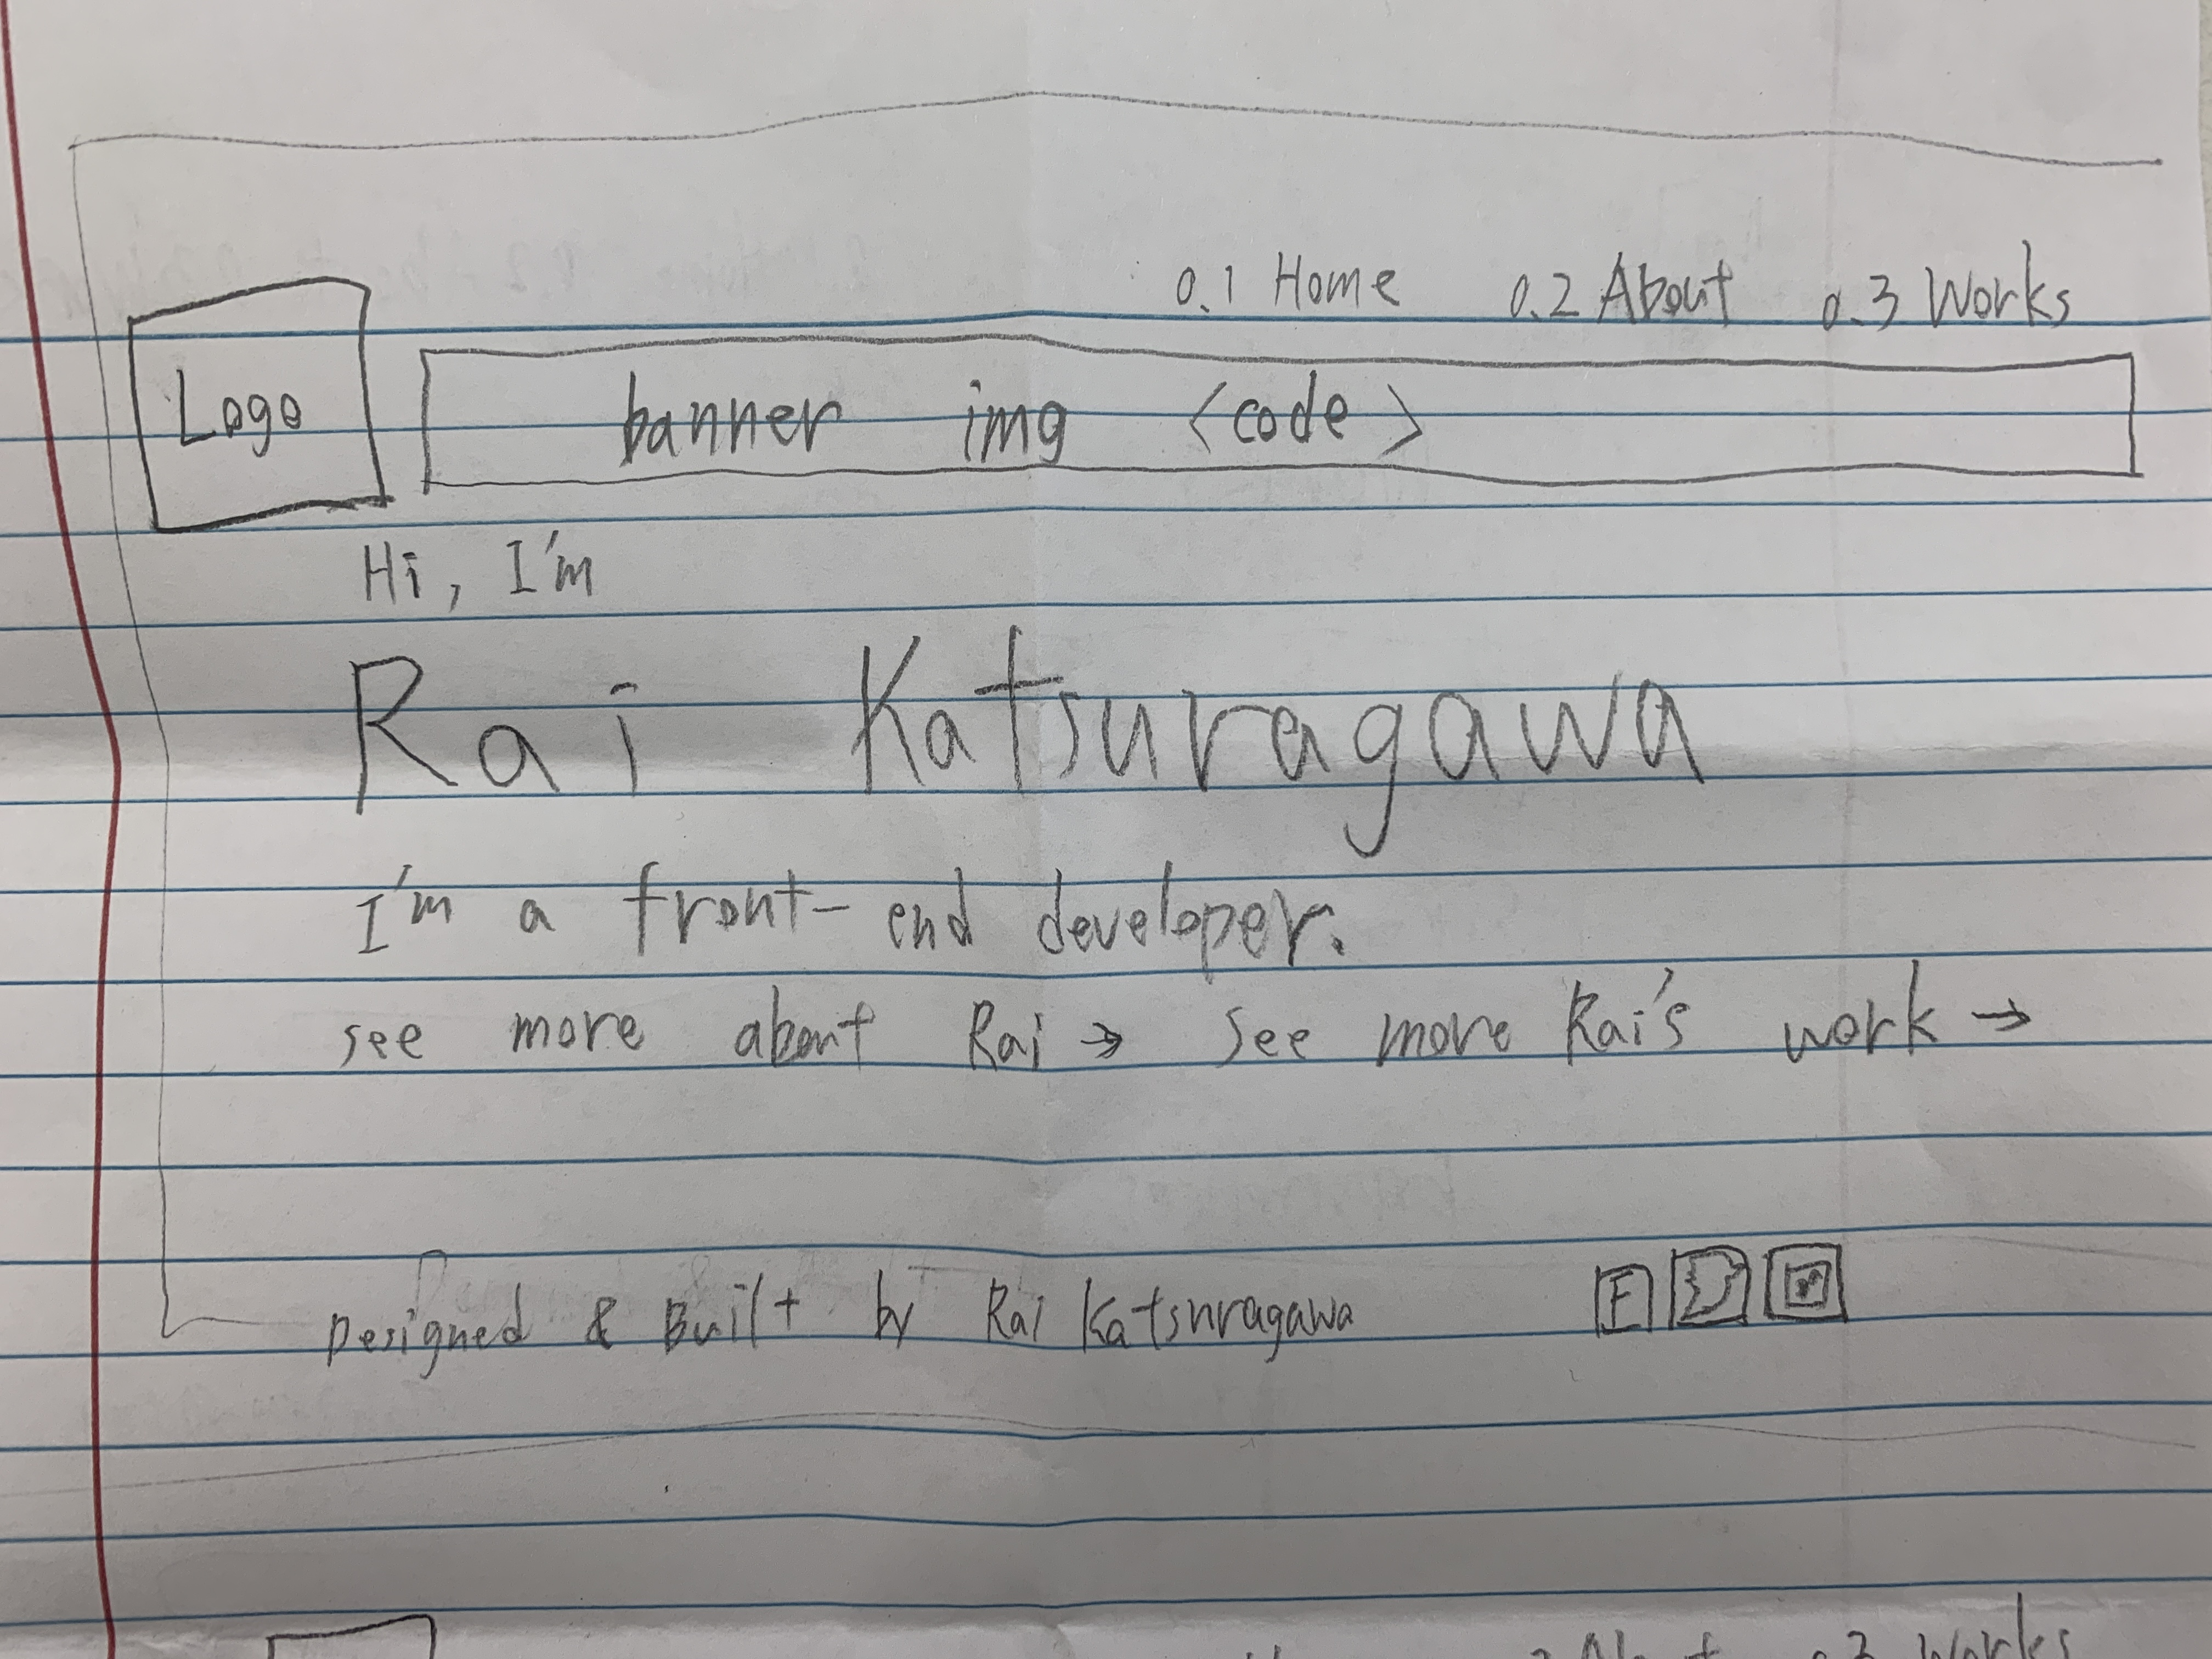 0.1 Home 0.2 About 0.3 Works
Logo
banner img <code>
Hi, I'm
Rai Katsuragawa
I'm a front-end developer.
see more about Rai → See more Rai's work →
Designed & Built by Rai Katsuragawa
F
About 0.3 Works